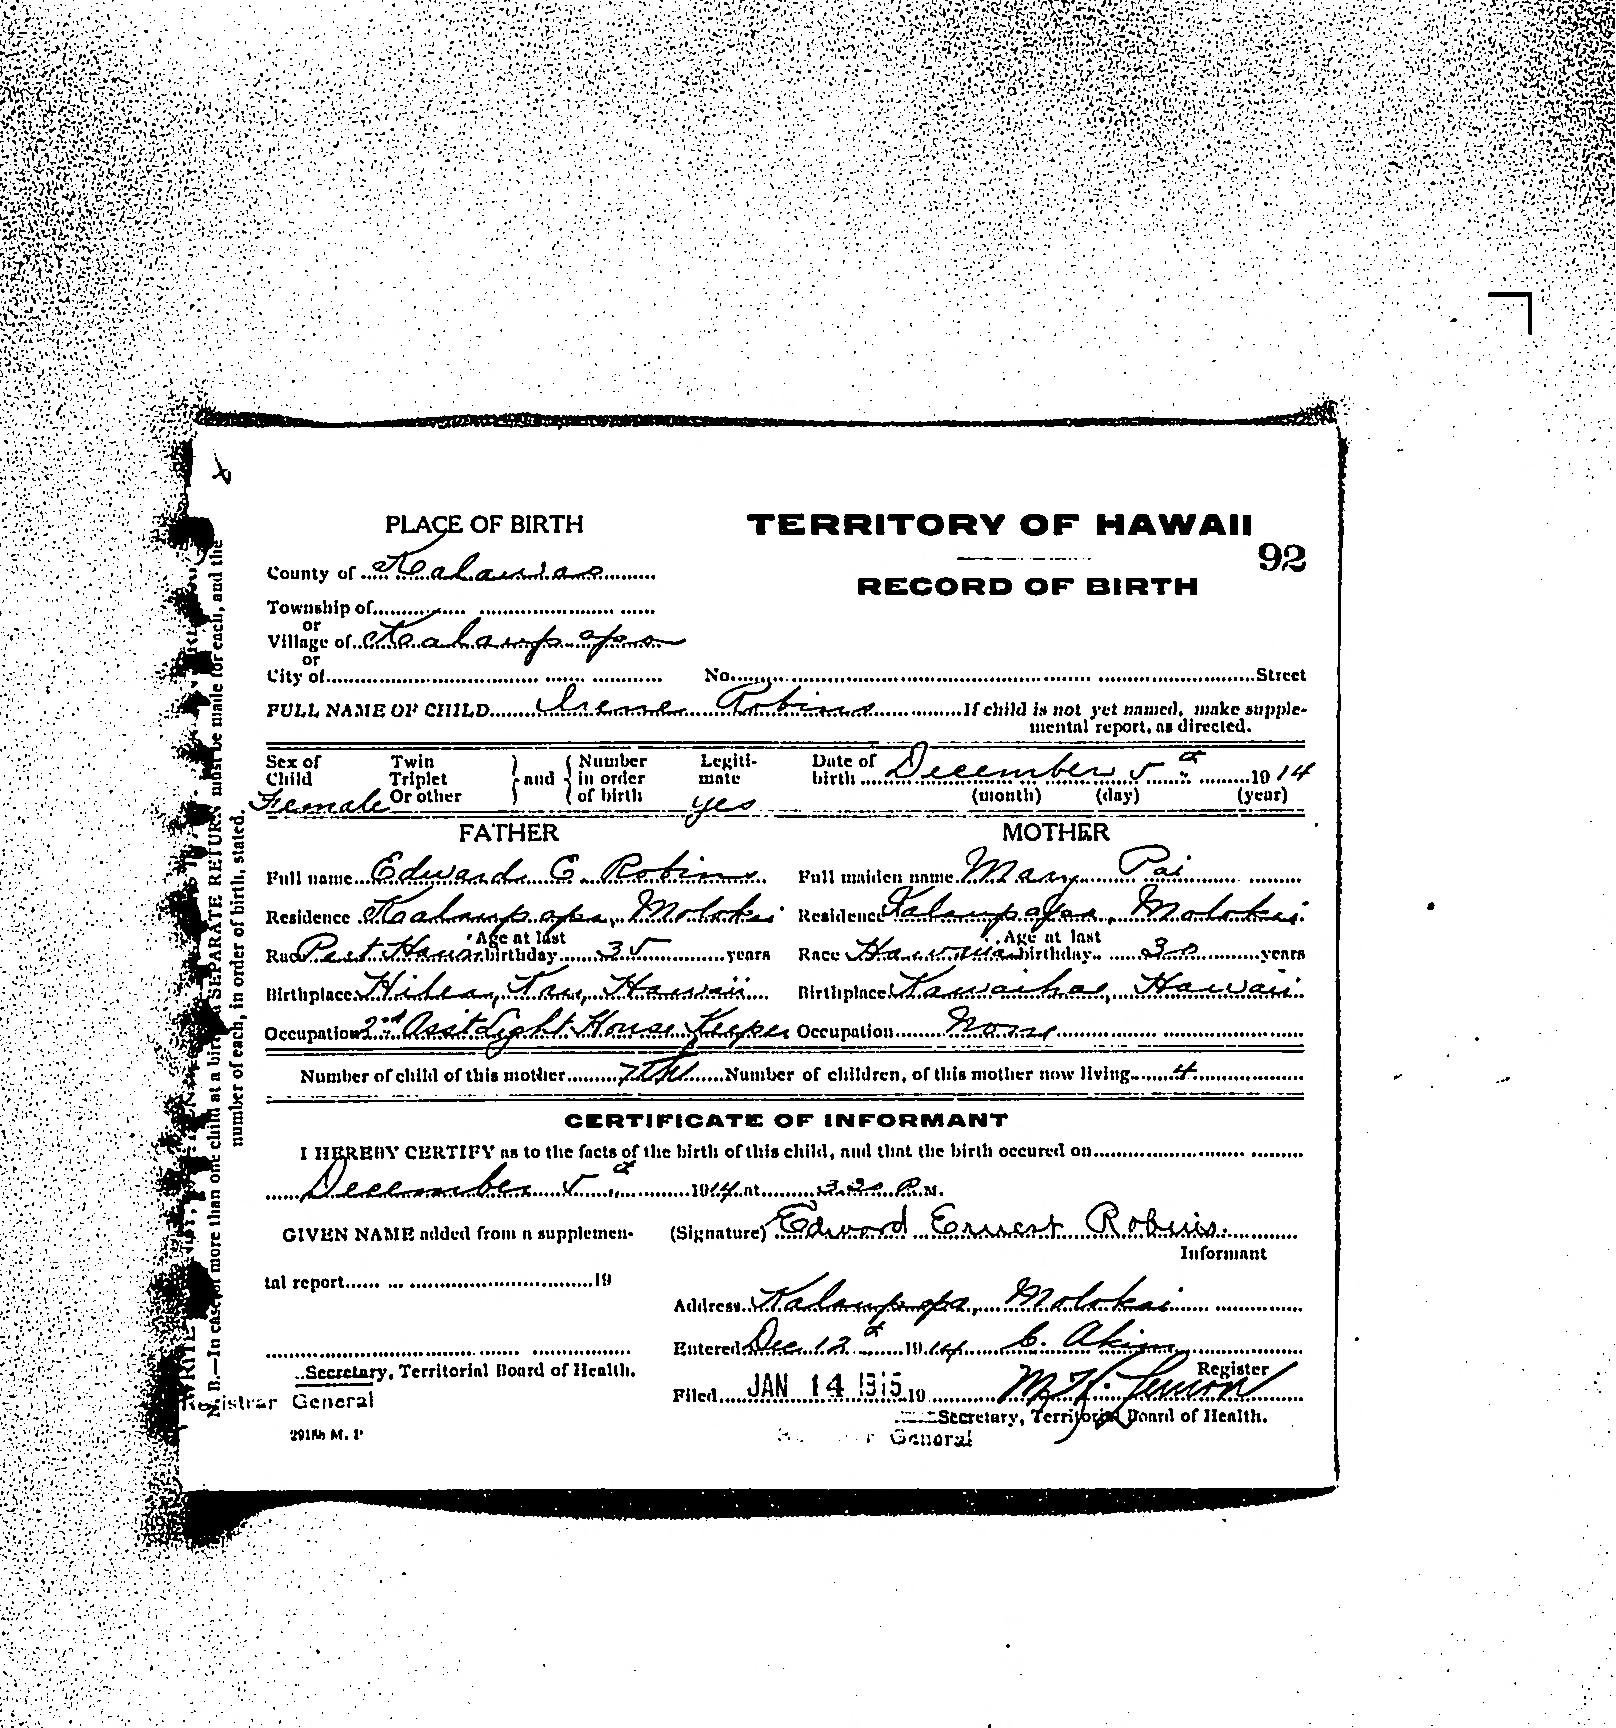 PLACE OF BIRTH
TERRITORY OF HAWAII
92
RECORD OF BIRTH
County of Kalawao
Township of
or
Village of Kalaupapa
or
City of
No. Street
FULL NAME OF CHILD Irene Robins If child is not yet named, make supple-
mental report, as directed.
Sex of Child Female
Twin Triplet Or other } and { Number in order of birth
Legiti-mate yes
Date of birth December 5th 1914
(month) (day) (year)
FATHER
Full name Edward E Robins
Residence Kalaupapa, Molokai
Race Part Hawn Age at last birthday 35 years
Birthplace Hilea, Kau, Hawaii
Occupation 2nd Asst Light House Keeper
MOTHER
Full maiden name Mary Pai
Residence Kalaupapa, Molokai
Race Hawaiian Age at last birthday 30 years
Birthplace Kawaihae, Hawaii
Occupation None
Number of child of this mother 7th Number of children, of this mother now living 4
CERTIFICATE OF INFORMANT
I HEREBY CERTIFY as to the facts of the birth of this child, and that the birth occured on
December 5th 1914 at 3.30 P.M.
(Signature) Edward Ernest Robins
Informant
GIVEN NAME added from a supplemen-
tal report 19
Secretary, Territorial Board of Health.
Registrar General
2918b M. P
Address Kalaupapa, Molokai
Entered Dec 12th 1914
Register
Filed JAN 14 1915 19
Secretary, Territorial Board of Health.
General
N. B.—In case of more than one child at a birth a SEPARATE RETURN must be made for each, and the
number of each, in order of birth, stated.